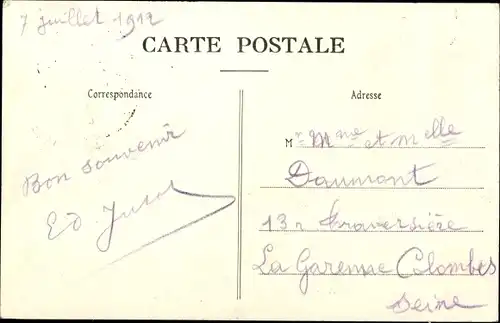 7 juillet 1912
CARTE POSTALE
Correspondance
Adresse
Bon souvenir
Ed
Mr Mme et Melle
Daumont
13 r Traversière
La Garenne Colombes
Seine